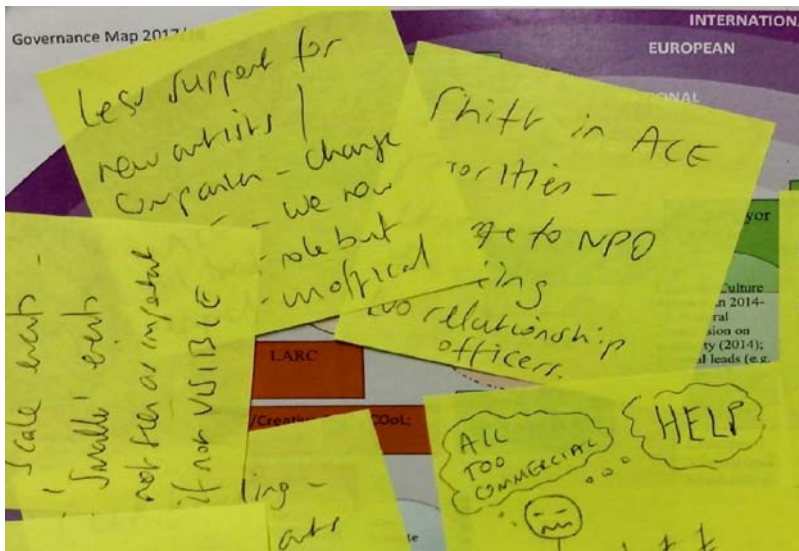 Governance Map 2017/18
INTERNATIONA
EUROPEAN
Less support for
new artists /
companies - change
- we now
- role but
- unofficial
Shift in ACE
orities -
ge to NPO
ing
no relationship
officers.
Scale events -
'Smaller' events
not seen as important
if not VISIBLE
LARC
/Creative
COoL;
yor
Culture
n 2014-
ral
sion on
ty (2014);
l leads (e.g.
ALL
TOO
COMMERCIAL
HELP
ling -
arts